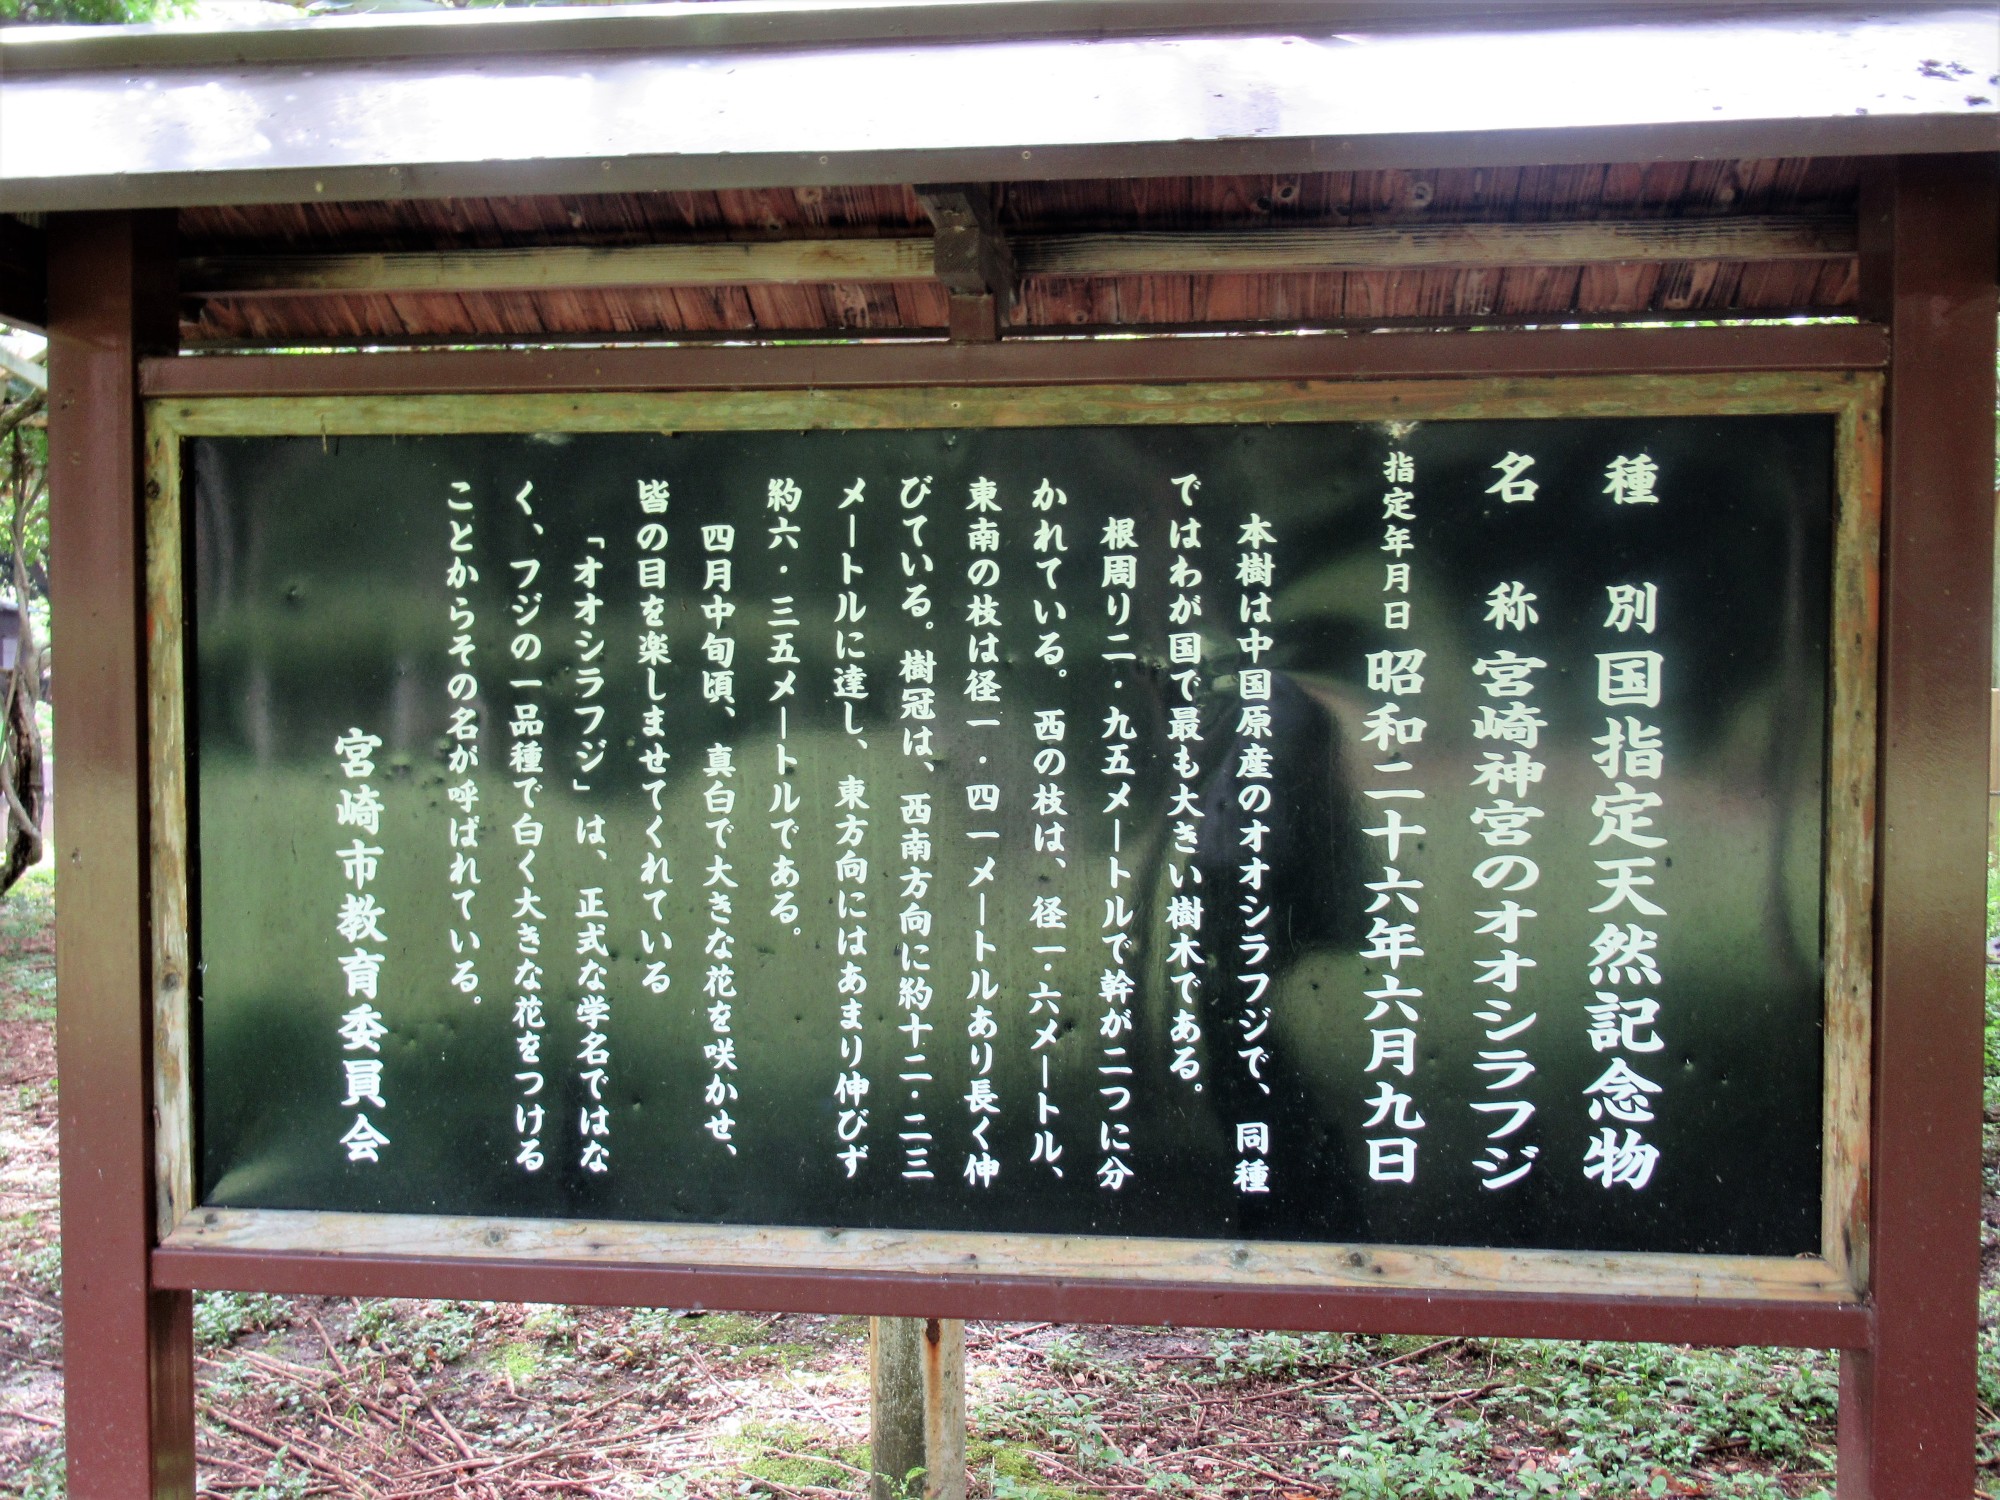 種　別　国指定天然記念物
名　称　宮崎神宮のオオシラフジ
指定年月日　昭和二十六年六月九日
本樹は中国原産のオオシラフジで、同種
ではわが国で最も大きい樹木である。
根周り二・九五メートルで幹が二つに分
かれている。西の枝は、径一・六メートル、
東南の枝は径一・四一メートルあり長く伸
びている。樹冠は、西南方向に約十二・二三
メートルに達し、東方向にはあまり伸びず
約六・三五メートルである。
四月中旬頃、真白で大きな花を咲かせ、
皆の目を楽しませてくれている
「オオシラフジ」は、正式な学名ではな
く、フジの一品種で白く大きな花をつける
ことからその名が呼ばれている。
宮崎市教育委員会